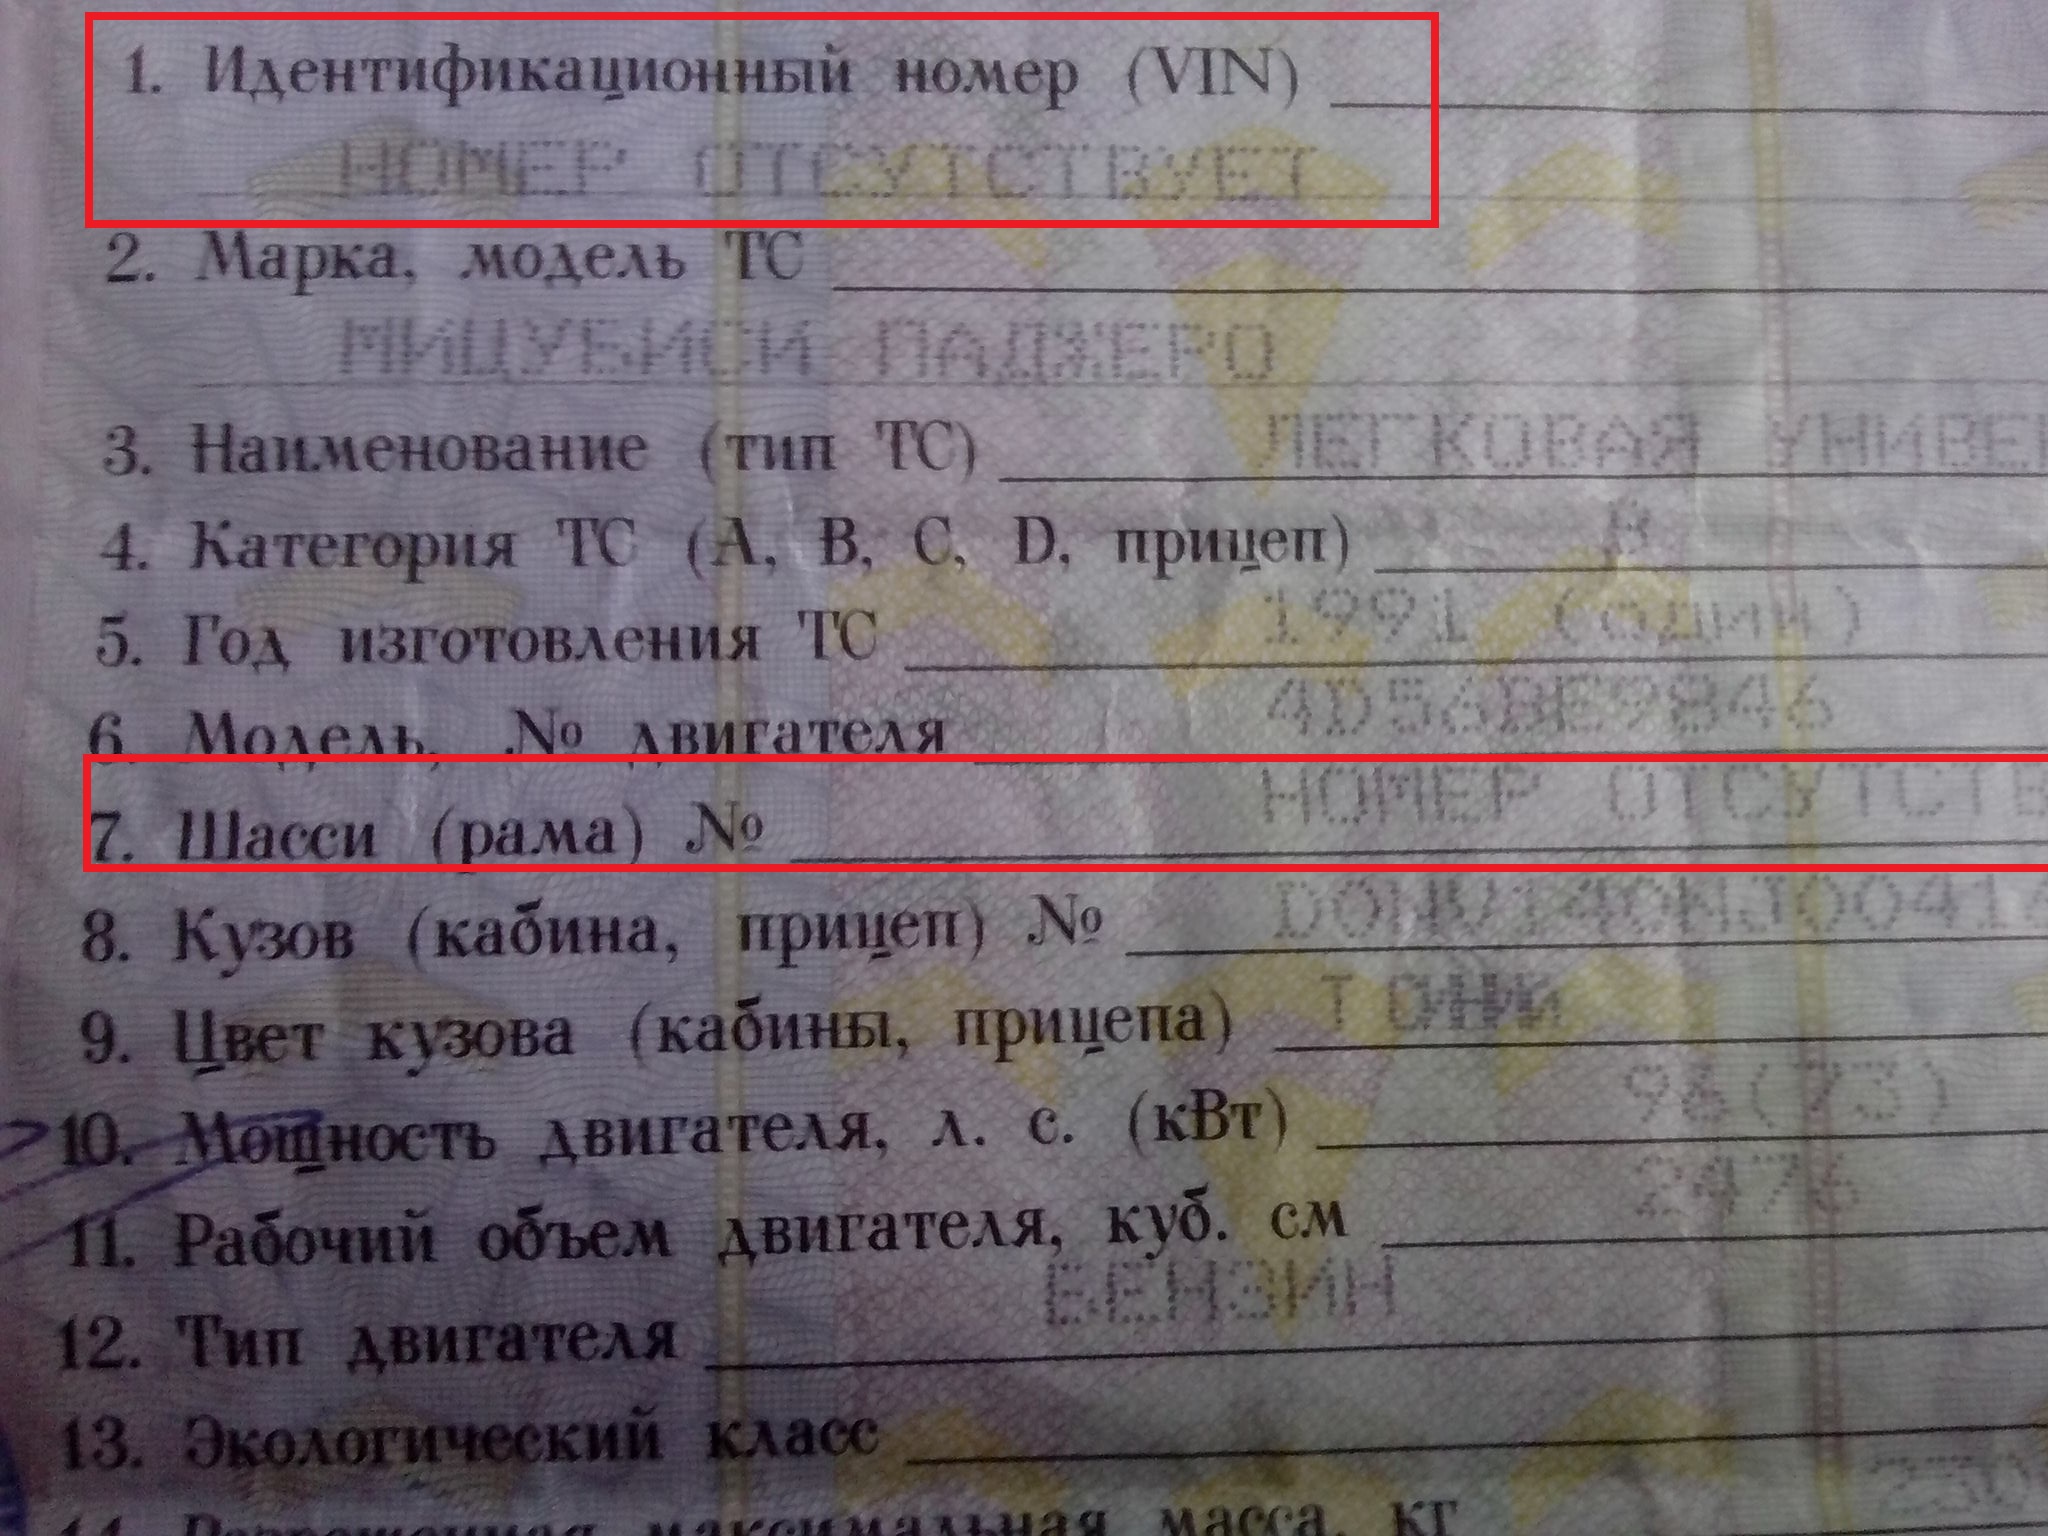 1. Идентификационный номер (VIN)
НОМЕР ОТСУТСТВУЕТ
2. Марка, модель ТС
МИЦУБИСИ ПАДЖЕРО
3. Наименование (тип ТС) ЛЕГКОВАЯ УНИВЕ
4. Категория ТС (А, В, С, D, прицеп) В
5. Год изготовления ТС 1991 (один)
6. Модель, № двигателя 4D56BE9846
7. Шасси (рама) № НОМЕР ОТСУТСТВ
8. Кузов (кабина, прицеп) № DONV140NJ00416
9. Цвет кузова (кабины, прицепа) Т СИНИ
10. Мощность двигателя, л. с. (кВт) 98(73)
11. Рабочий объем двигателя, куб. см 2476
12. Тип двигателя БЕНЗИН
13. Экологический класс
14. Разрешенная максимальная масса, кг